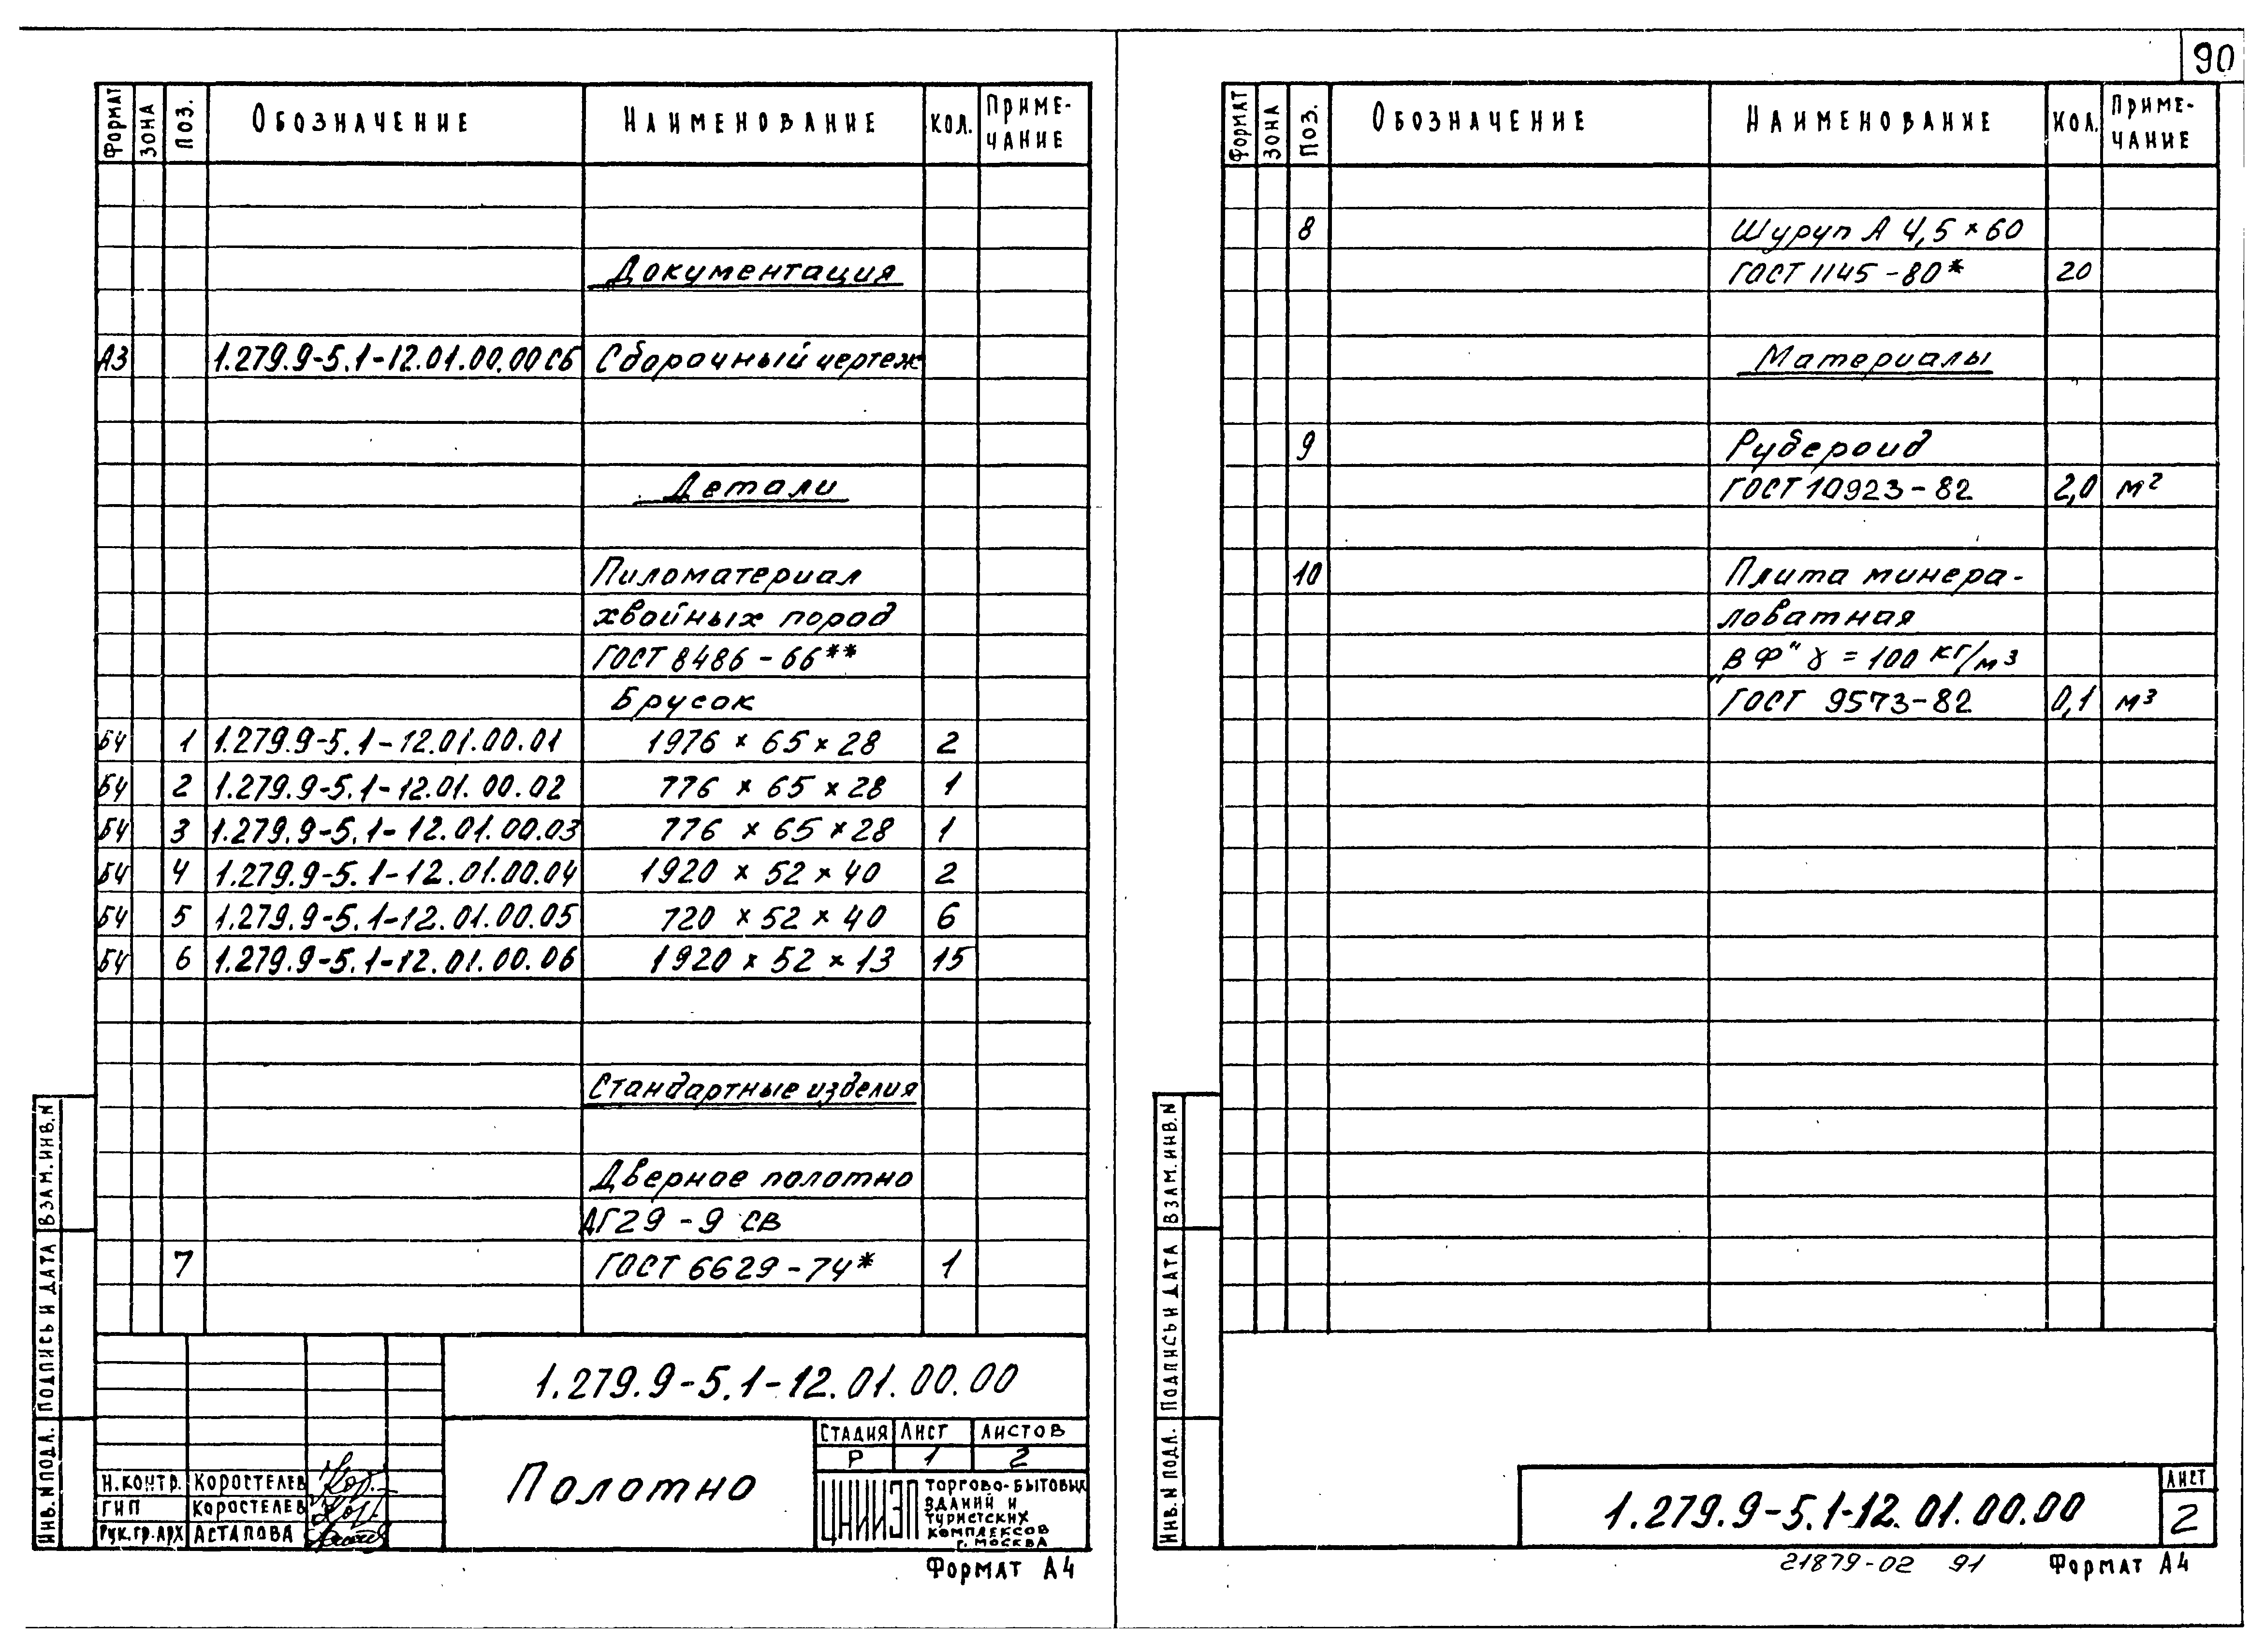 90
ФОРМАТ ЗОНА ПОЗ. ОБОЗНАЧЕНИЕ НАИМЕНОВАНИЕ КОЛ. ПРИМЕ-
ЧАНИЕ
Документация
А3 1.279.9-5.1-12.01.00.00СБ Сборочный чертеж
Детали
Пиломатериал
хвойных пород
ГОСТ 8486-66**
Брусок
БЧ 1 1.279.9-5.1-12.01.00.01 1976 × 65 × 28 2
БЧ 2 1.279.9-5.1-12.01.00.02 776 × 65 × 28 1
БЧ 3 1.279.9-5.1-12.01.00.03 776 × 65 × 28 1
БЧ 4 1.279.9-5.1-12.01.00.04 1920 × 52 × 40 2
БЧ 5 1.279.9-5.1-12.01.00.05 720 × 52 × 40 6
БЧ 6 1.279.9-5.1-12.01.00.06 1920 × 52 × 13 15
Стандартные изделия
Дверное полотно
ДГ29-9 СВ
7 ГОСТ 6629-74* 1
1.279.9-5.1-12.01.00.00
Полотно
СТАДИЯ ЛИСТ ЛИСТОВ
Р 1 2
Н.КОНТР. КОРОСТЕЛЕВ
ГИП КОРОСТЕЛЕВ
РУК.ГР.АРХ АСТАПОВА
ЦНИИЭП ТОРГОВО-БЫТОВЫХ
ЗДАНИЙ И
ТУРИСТСКИХ
КОМПЛЕКСОВ
Г. МОСКВА
ИНВ.N ПОДЛ. ПОДПИСЬ И ДАТА ВЗАМ.ИНВ.N
ФОРМАТ А4
ФОРМАТ ЗОНА ПОЗ. ОБОЗНАЧЕНИЕ НАИМЕНОВАНИЕ КОЛ. ПРИМЕ-
ЧАНИЕ
8 Шуруп А 4,5×60
ГОСТ 1145-80* 20
Материалы
9 Рубероид
ГОСТ 10923-82 2,0 м²
10 Плита минера-
ловатная
"ВФ" γ = 100 кг/м³
ГОСТ 9573-82 0,1 м³
ИНВ.N ПОДЛ. ПОДПИСЬ И ДАТА ВЗАМ.ИНВ.N
1.279.9-5.1-12.01.00.00
ЛИСТ
2
21879-02 91
ФОРМАТ А4